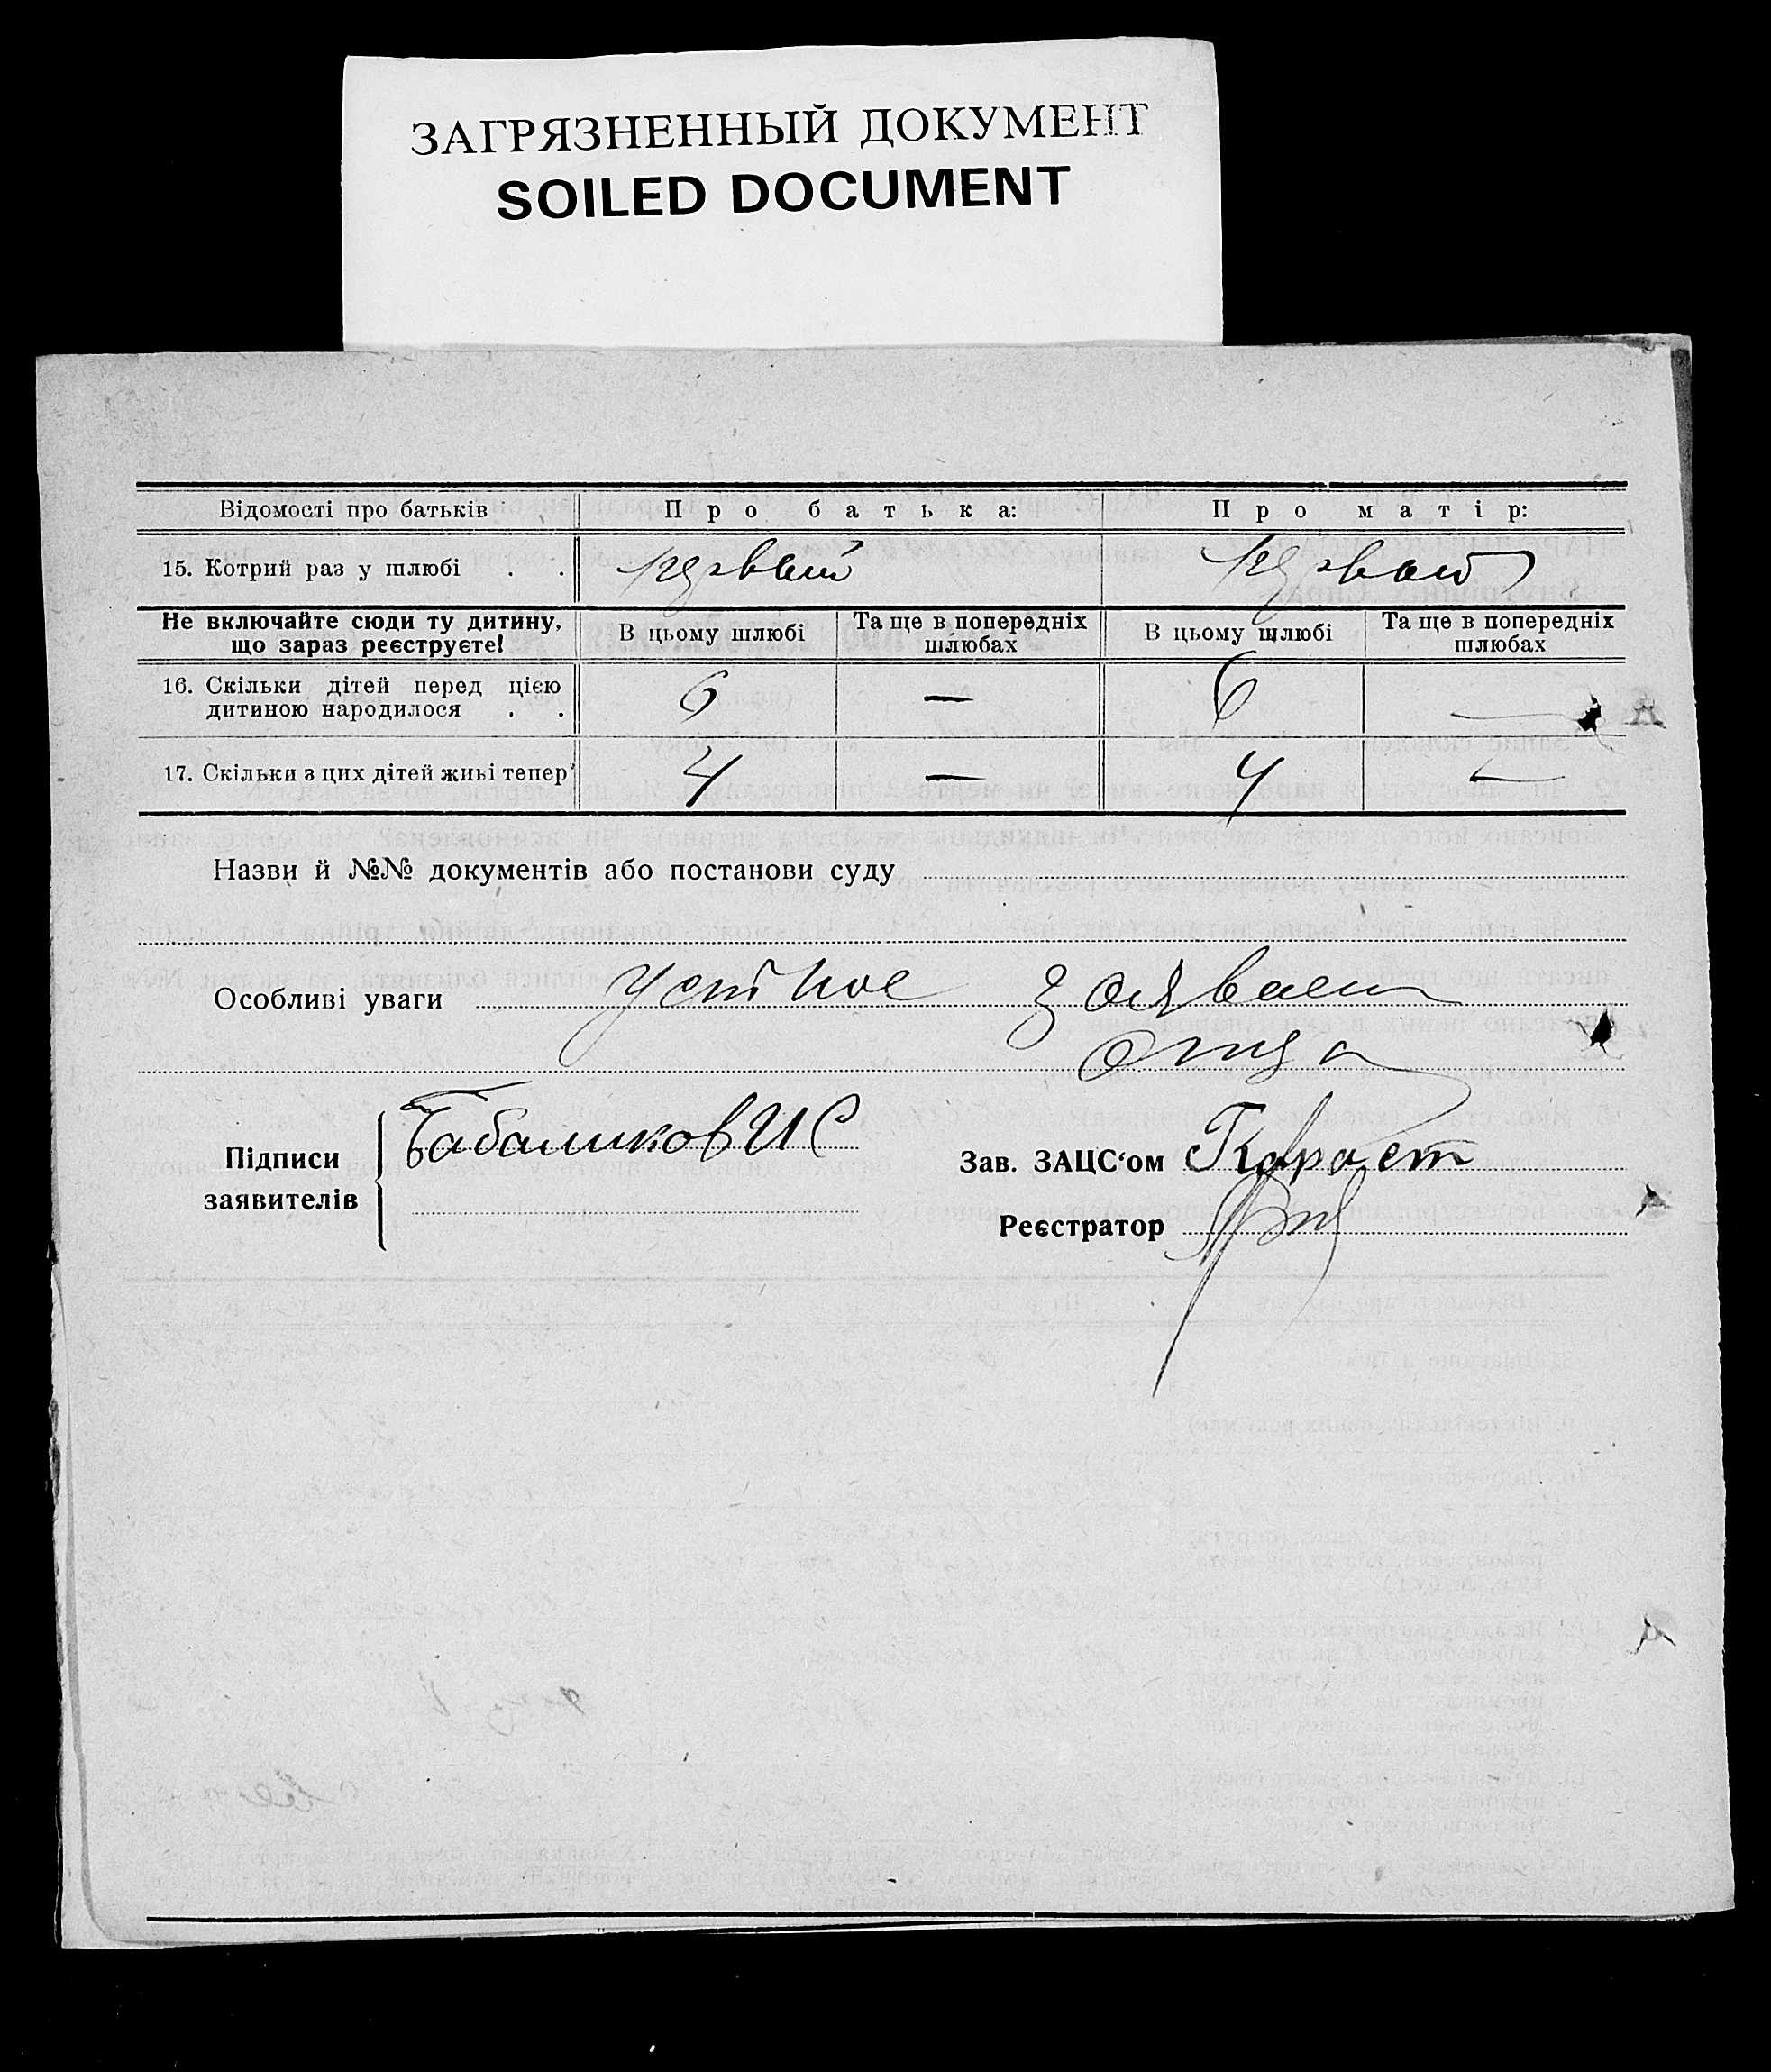 ЗАГРЯЗНЕННЫЙ ДОКУМЕНТ
SOILED DOCUMENT
Відомості про батьків Про батька: Про матір:
15. Котрий раз у шлюбі . . первый первый
Не включайте сюди ту дитину, що зараз реєструєте! В цьому шлюбі Та ще в попередніх шлюбах В цьому шлюбі Та ще в попередніх шлюбах
16. Скільки дітей перед цією
дитиною народилося . . 6 — 6 —
17. Скільки з цих дітей живі тепер 4 — 4 —
Назви й №№ документів або постанови суду
Особливі уваги устное
отца
Підписи
заявителів
Зав. ЗАЦС‘ом
Реєстратор